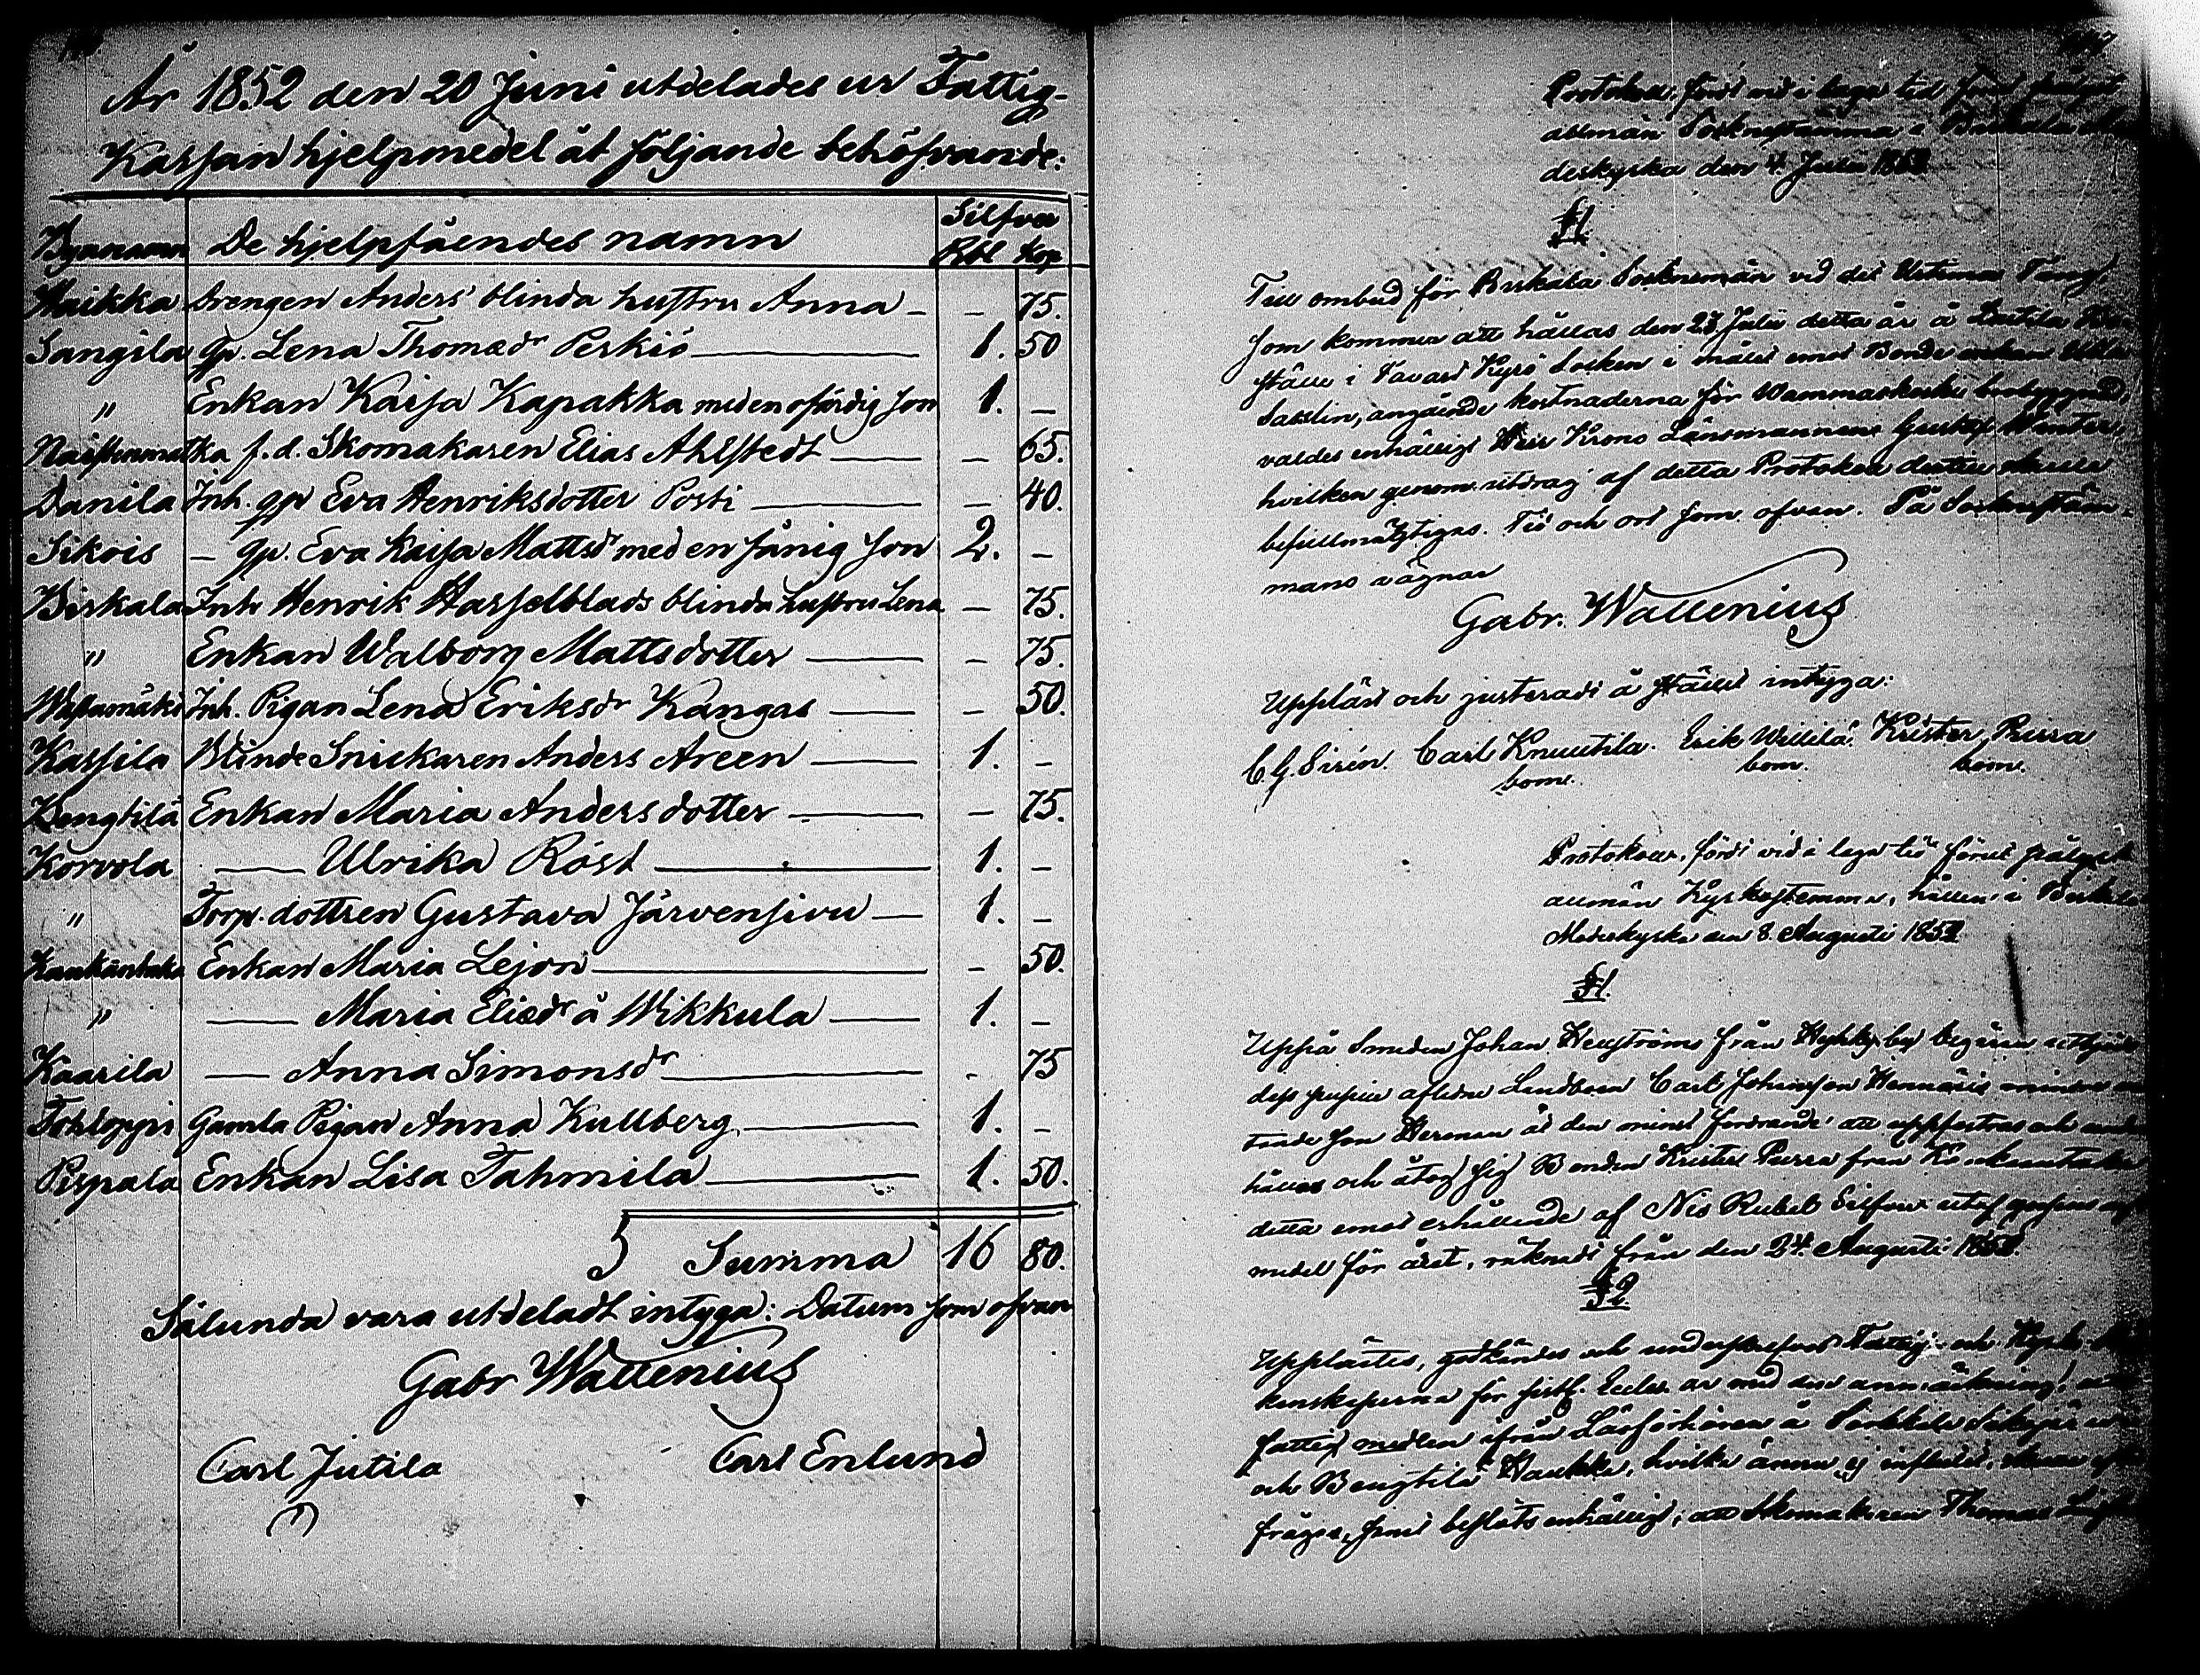 År 1852 den 20 Juni utdelades ur Fattig-
Kassan hjelpmedel åt följande behöfvande:
Bynamn De hjelpfåendes namn Silfver Rbl Kop
Haikka Drengen Anders' blinda hustru Anna — — 75.
Sangila gp. Lena Thomædr Perkiö — 1. 50
" Enkan Kaisa Kapakka med en ofärdig son 1. —
Naistenmatka f.d. Skomakaren Elias Ahlstedt — — 65.
Danila Inh. gp Eva Henriksdotter Posti — — 40.
Sikois — gp. Eva Kaisa Mattsdr med en fånig son 2. —
Birkala Inh Henrik Hasselblads blinda hustru Lena — 75.
" Enkan Walborg Mattsdotter — — 75.
Inh. Pigan Lena Eriksdr Kangas — — 50.
Kassila Blinde Snickaren Anders Areen — 1. —
Bengtilä Enkan Maria Andersdotter — — 75.
Korvola — Ulrika Röst — 1. —
" Torp. dottren Gustava Järvensivu — 1. —
Enkan Maria Lejon — — 50.
" — Maria Eliædr å Wikkula — 1. —
Kaarila — Anna Simonsdr — - 75
Tohloppi Gamla Pigan Anna Kullberg — 1. —
Pispala Enkan Lisa Tahmila — 1. 50.
Summa 16 80.
Sålunda vara utdeladt intyga: Datum som ofvan
Gabr Wallenius
Carl Jutila Carl Enlund
Protokoll, fördt vid i laga tid förut pålyst
allmän Sockenstämma i Birkala
deskyrka den 4. Julii 1852
§1.
Till ombud för Birkala Sockenmän vid det Urtima Ting,
som kommer att hållas den 28 Julii detta år å
ställe i Tavast Kyrö Socken i målet emot Bonde enkan
angående kostnaderna för Wammaskoski
valdes enhälligt Herr Krono Länsmannen Gustaf
hvilken genom utdrag af detta Protokoll dertill skulle
befullmägtigas. Tid och ort som ofvan. På Sockenstäm-
mans vägnar
Gabr. Wallenius
Uppläst och justeradt å stället intyga:
C. G. Sirén. Carl Knuutila. Erik Willilä. Krister Pirra
bom. bom. bom.
Protokoll, fördt vid i laga tid förut pålyst
allmän Kyrkostemma, hållen i Birkala
Moderkyrka den 8. Augusti 1852
§1.
Uppå Smeden Johan från by begäran
aflidne Carl minder
son Herman åt den minst fordrande att uppfostras och
hållas och åtog sig Bonden Krister från
detta emot erhållande af Nio Rubel Silfver
medel för året, räknadt från den 24. Augusti 1852.
§2.
Upplästes, godkändes och underskrefvos Fattig- och Kyrko
för sistl. Eccles. år med den anmärkning, att
fattig medlen ifrån Läsförhören å
och Bengtilä Haikka, hvilka ännu ej influtit, skulle
frågas, samt beslöts enhälligt, att Skomakaren Thomas